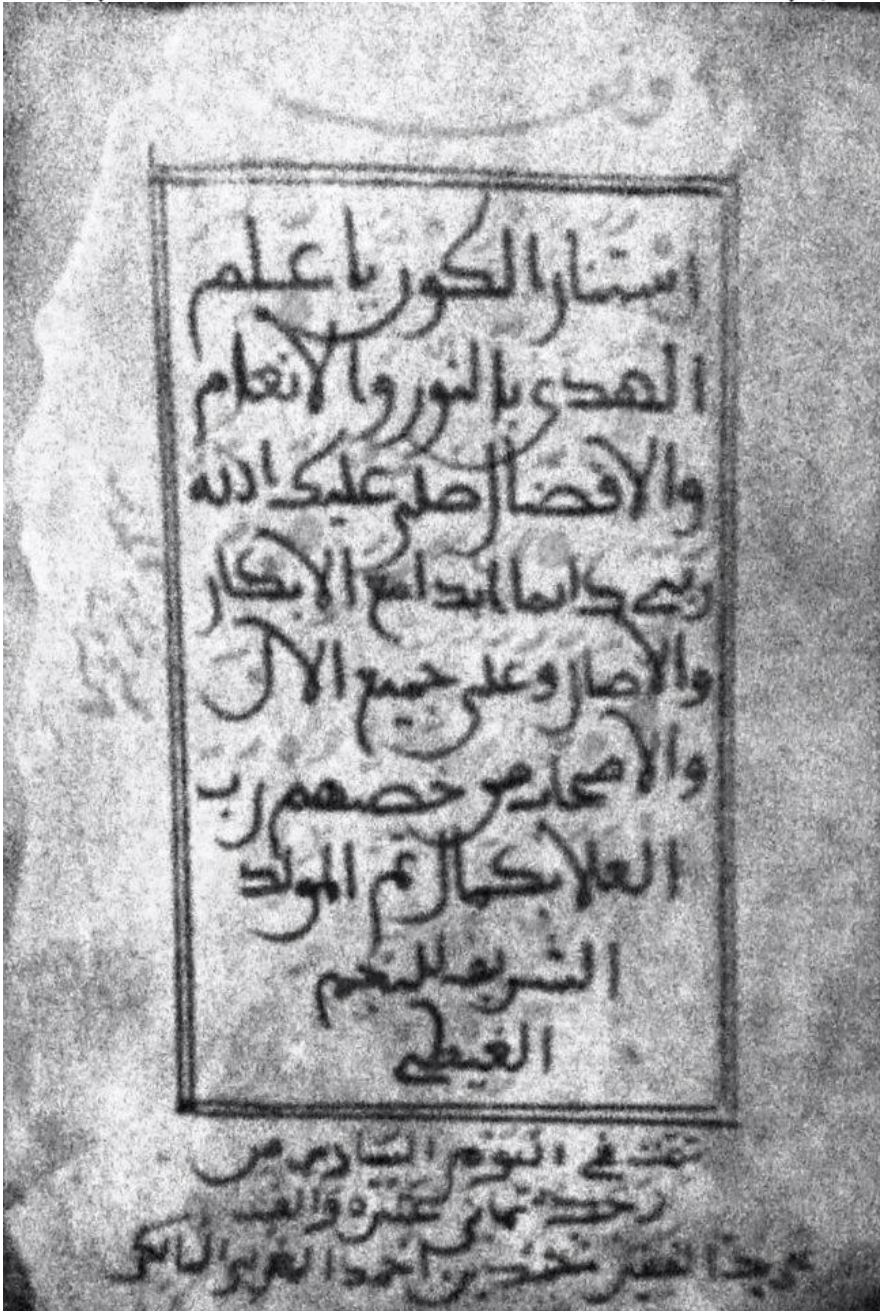 استنار الكون يا علم
الهدى بالنور والانعام
والافضال صلى عليك الله
ربي دائما ابدا مع الابكار
والاصال وعلى جميع الال
والاصحاب من خصهم رب
العلا بكمال تم المولد
الشريف للنجم
الغيطي
تمت في اليوم السادس من
رجب ثماني عشره والف
الفقير بن احمد المالكي